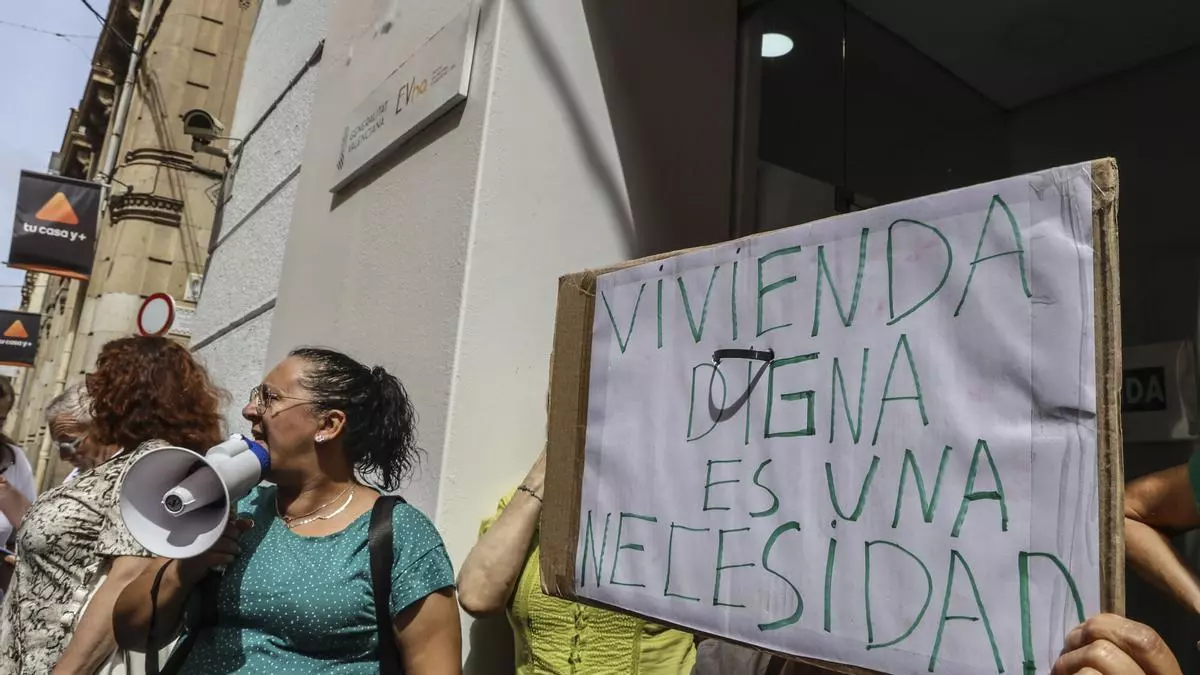 GENERALITAT
VALENCIANA
EVha
tu casa y+
tu casa y+
VIVIENDA
DIGNA
ES UNA
NECESIDAD